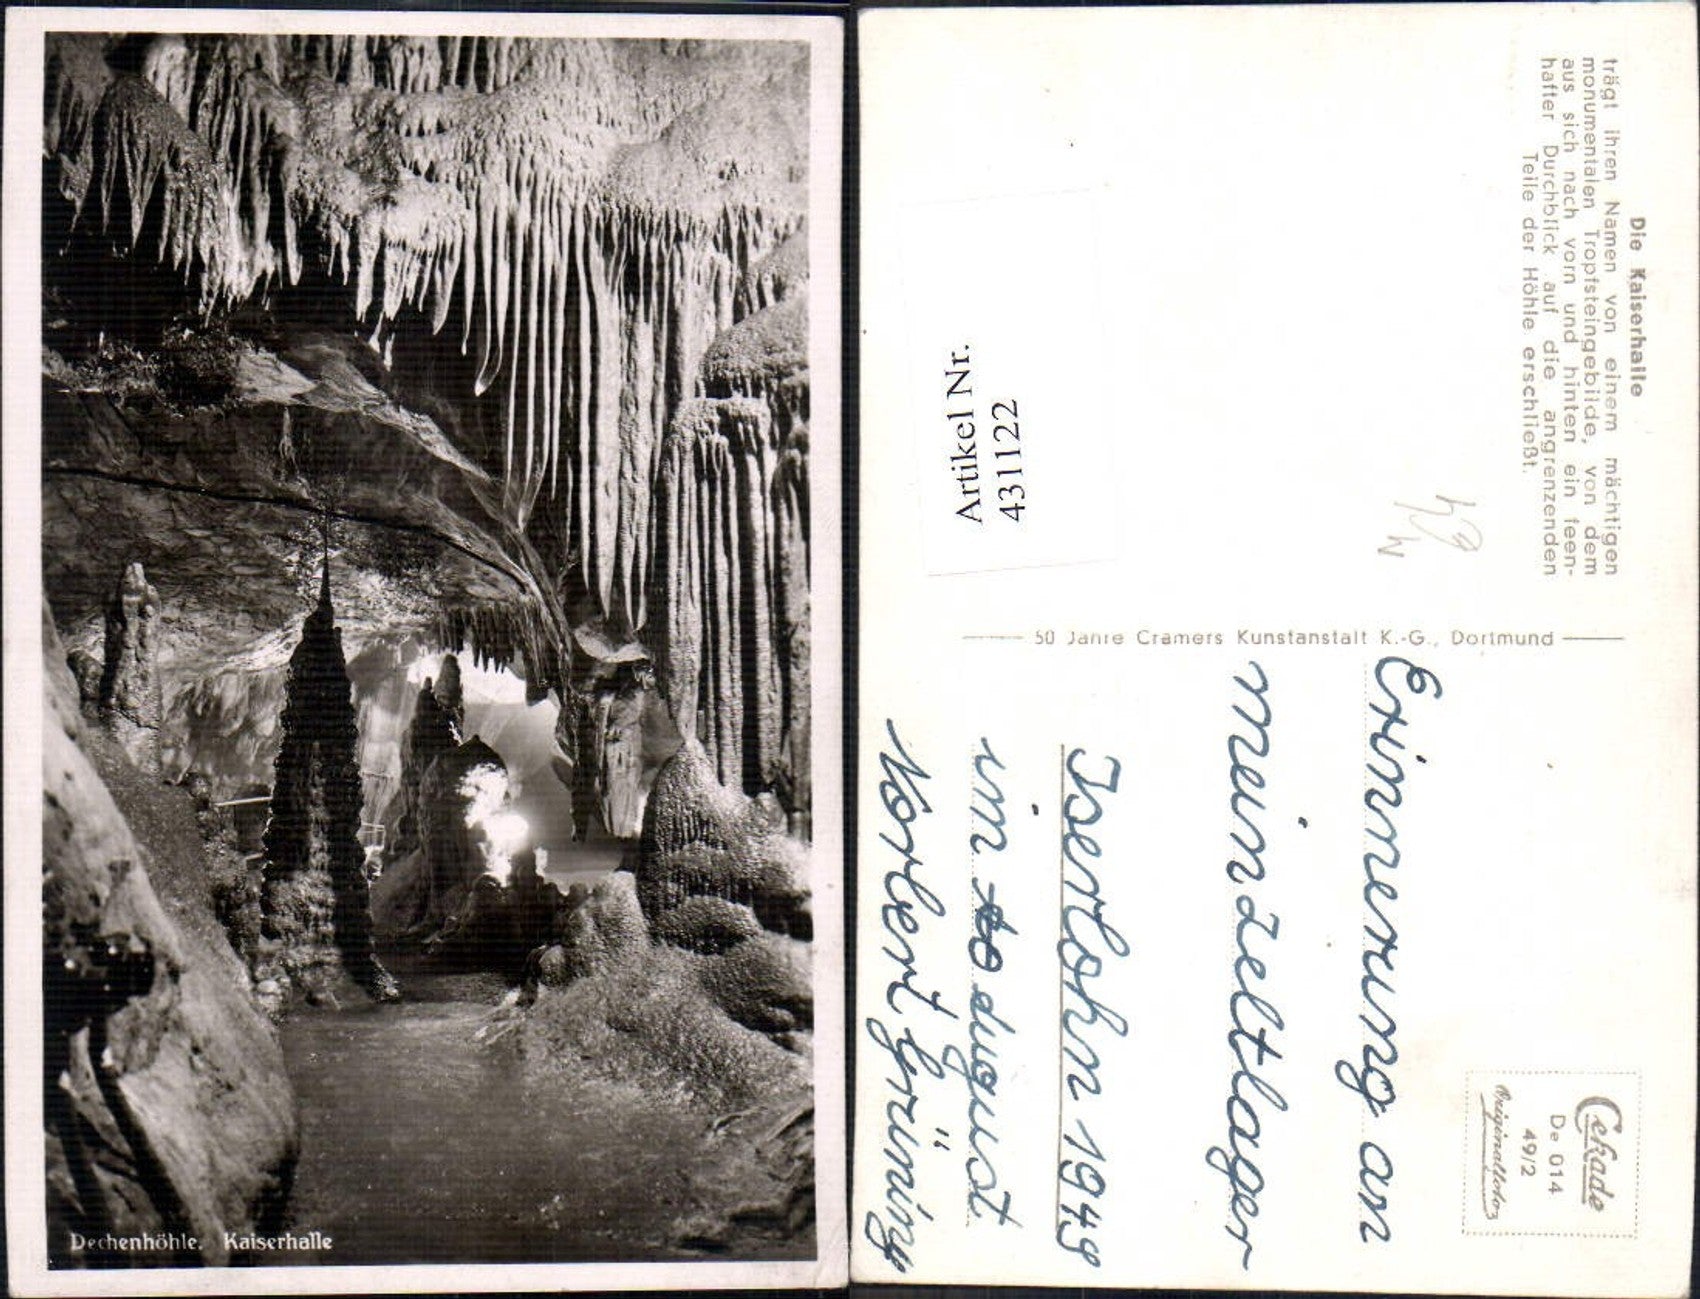 Dechenhöhle. Kaiserhalle
Die Kaiserhalle
trägt ihren Namen von einem mächtigen
monumentalen Tropfsteingebilde, von dem
aus sich nach vorn und hinten ein feen-
hafter Durchblick auf die angrenzenden
Teile der Höhle erschließt.
Artikel Nr.
431122
50 Jahre Cramers Kunstanstalt K.-G., Dortmund
Cekade
De 014
49/2
Originalfoto
Erinnerung an
mein zeltlager
Iserlohn 1949
im August
Norbert Grüning